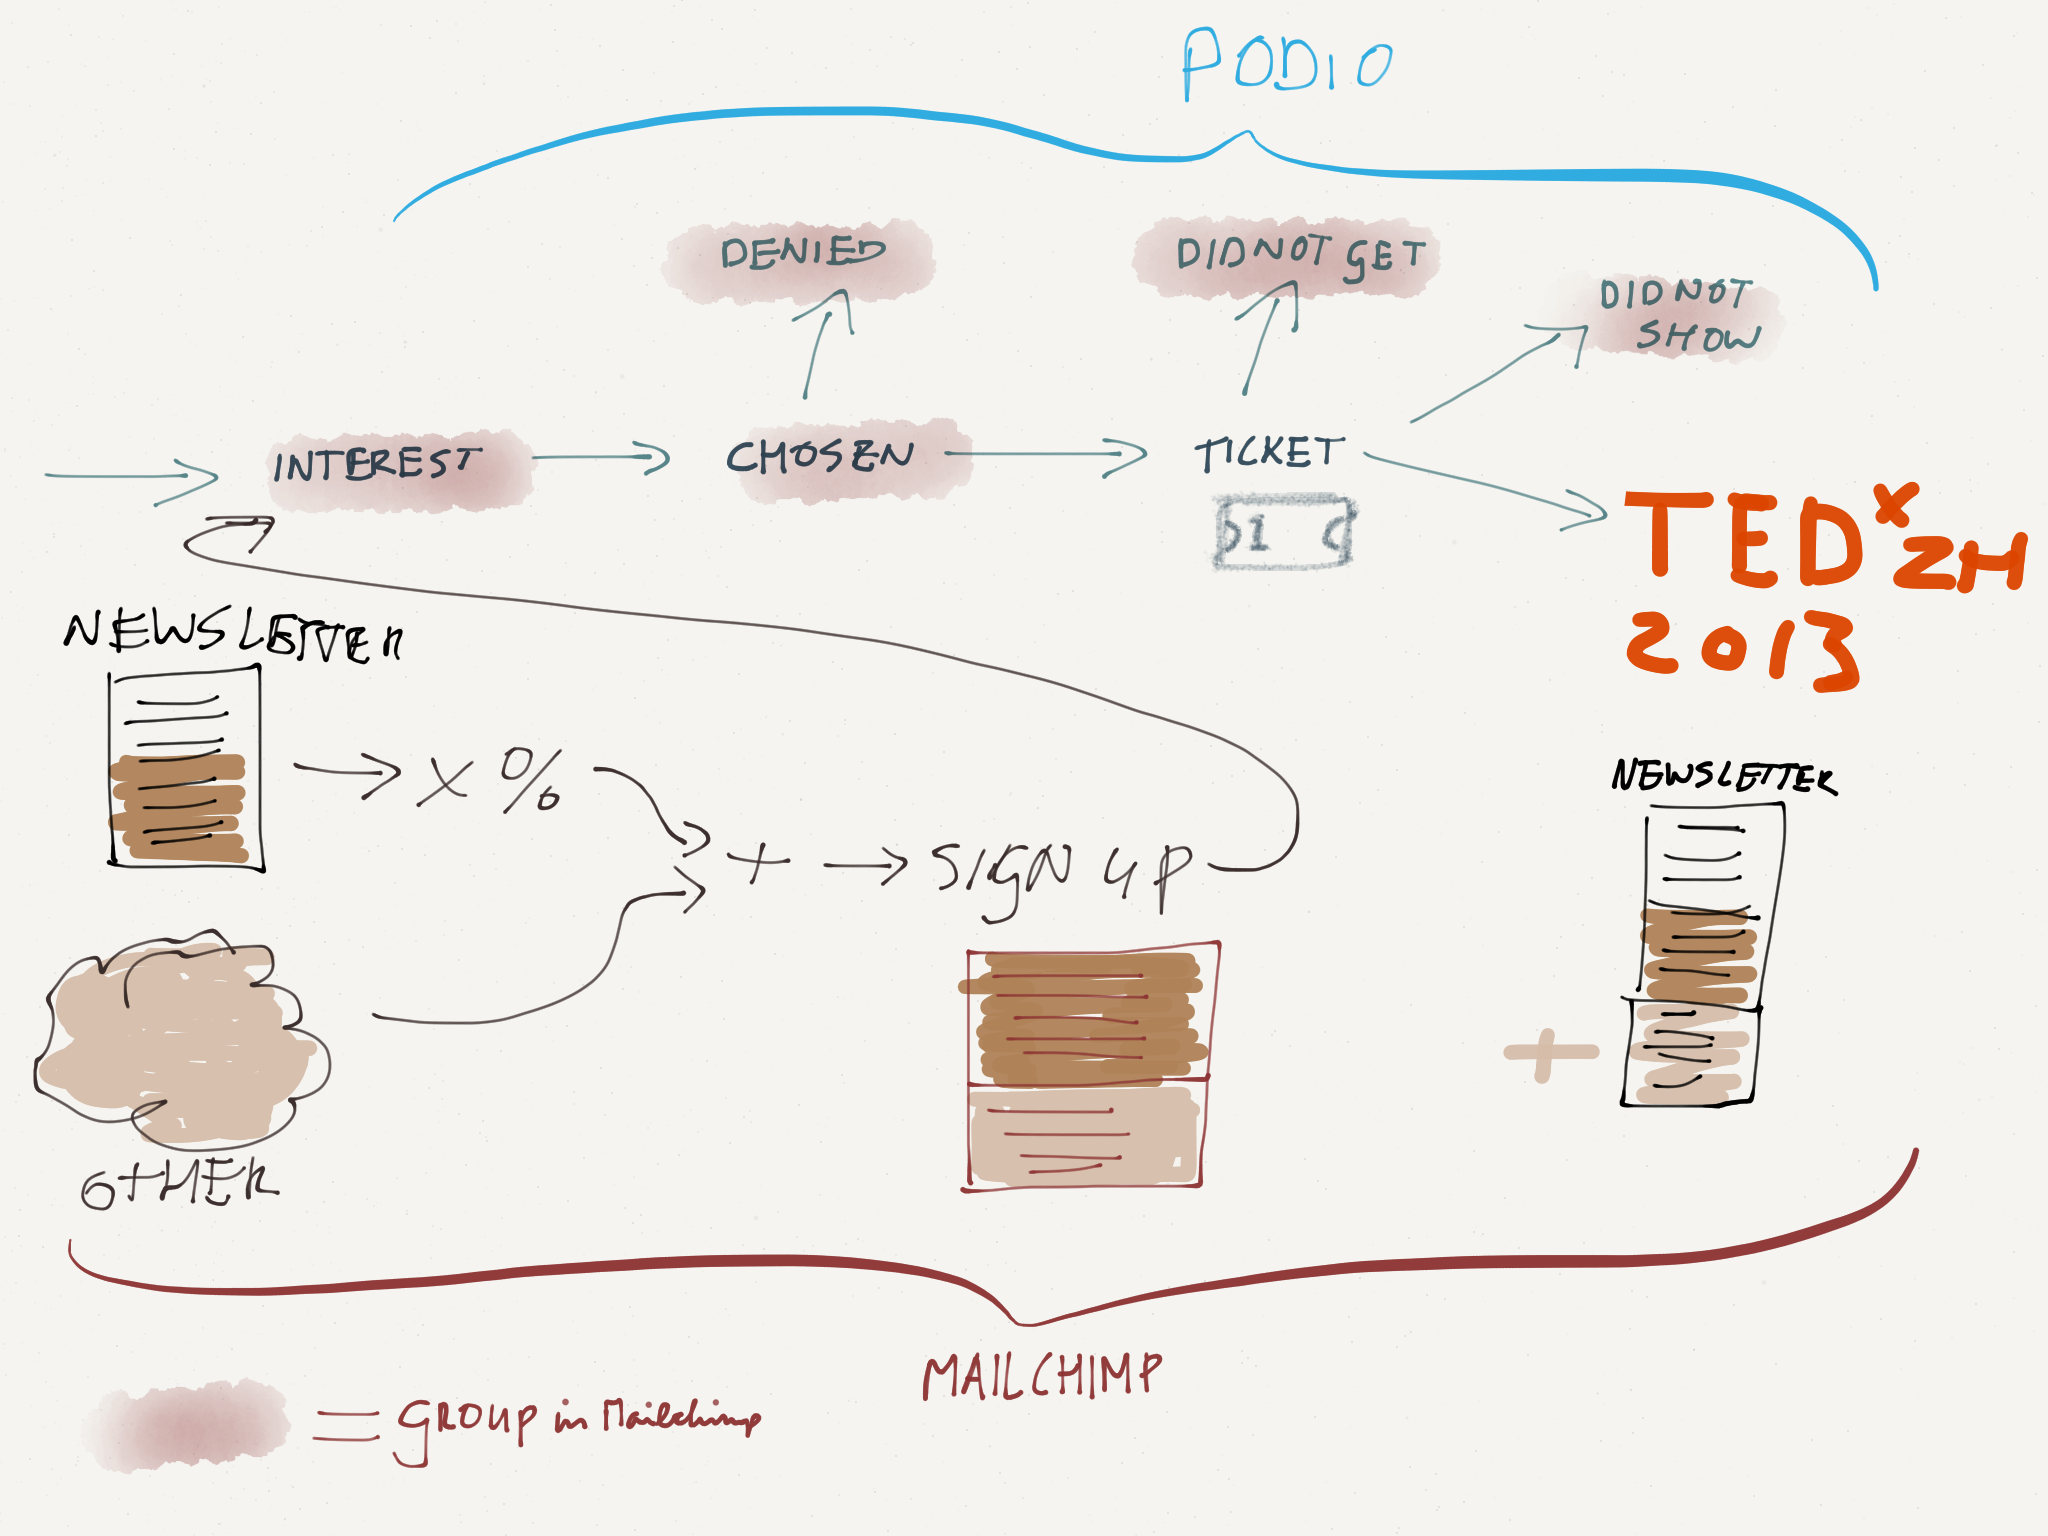 PODIO
DENIED
DID NOT GET
DID NOT
SHOW
INTEREST
CHOSEN
TICKET
1
TEDxZH
2013
NEWSLETTER
X %
+
SIGN UP
NEWSLETTER
+
OTHER
MAILCHIMP
= GROUP in Mailchimp